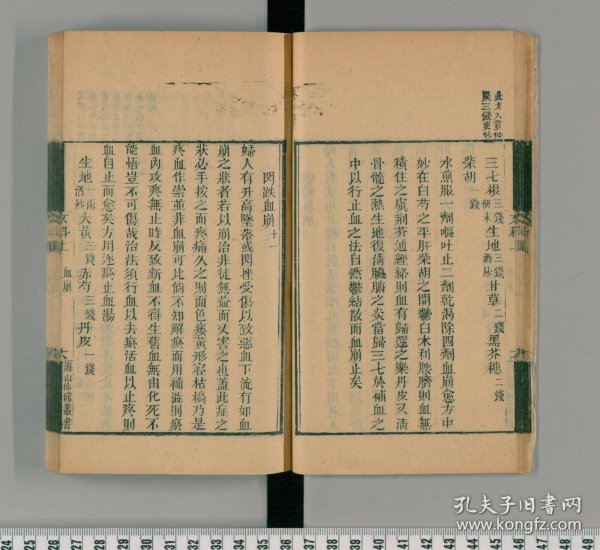 此方入貫仲
炭三錢更妙
三七根三錢研末生地三錢酒炒甘草二錢黑芥穗二錢
柴胡一錢
水煎服一劑嘔吐止二劑乾渴除四劑血崩愈方中
妙在白芍之平肝柴胡之開鬱白术利腰臍則血無
積住之虞荊芥通經絡則血有歸還之樂丹皮又清
骨髓之熱生地復清臟腑之炎當歸三七於補血之
中以行止血之法自然鬱結散而血崩止矣
閃跌血崩十一
婦人有升高墜落或閃挫受傷以致惡血下流有如血
崩之狀者若以崩治非徒無益而又害之也蓋此症之
狀必手按之而疼痛久之則面色痿黃形容枯槁乃是
瘀血作祟並非血崩可比倘不知解瘀而用補澁則瘀
血內攻疼無止時反致新血不得生舊血無由化死不
能悟豈不可傷哉治法須行血以去瘀活血以止疼則
血自止而愈矣方用逐瘀止血湯
生地一兩酒炒大黃三錢赤芍三錢丹皮一錢
女科上
血崩
六
海山仙館叢書
孔夫子旧书网
www.kongfz.com
24 25 26 27 28 29 30 31 32 33 34 35 36 37 38 39 40 41 42 43 44 45 46 47 48 49